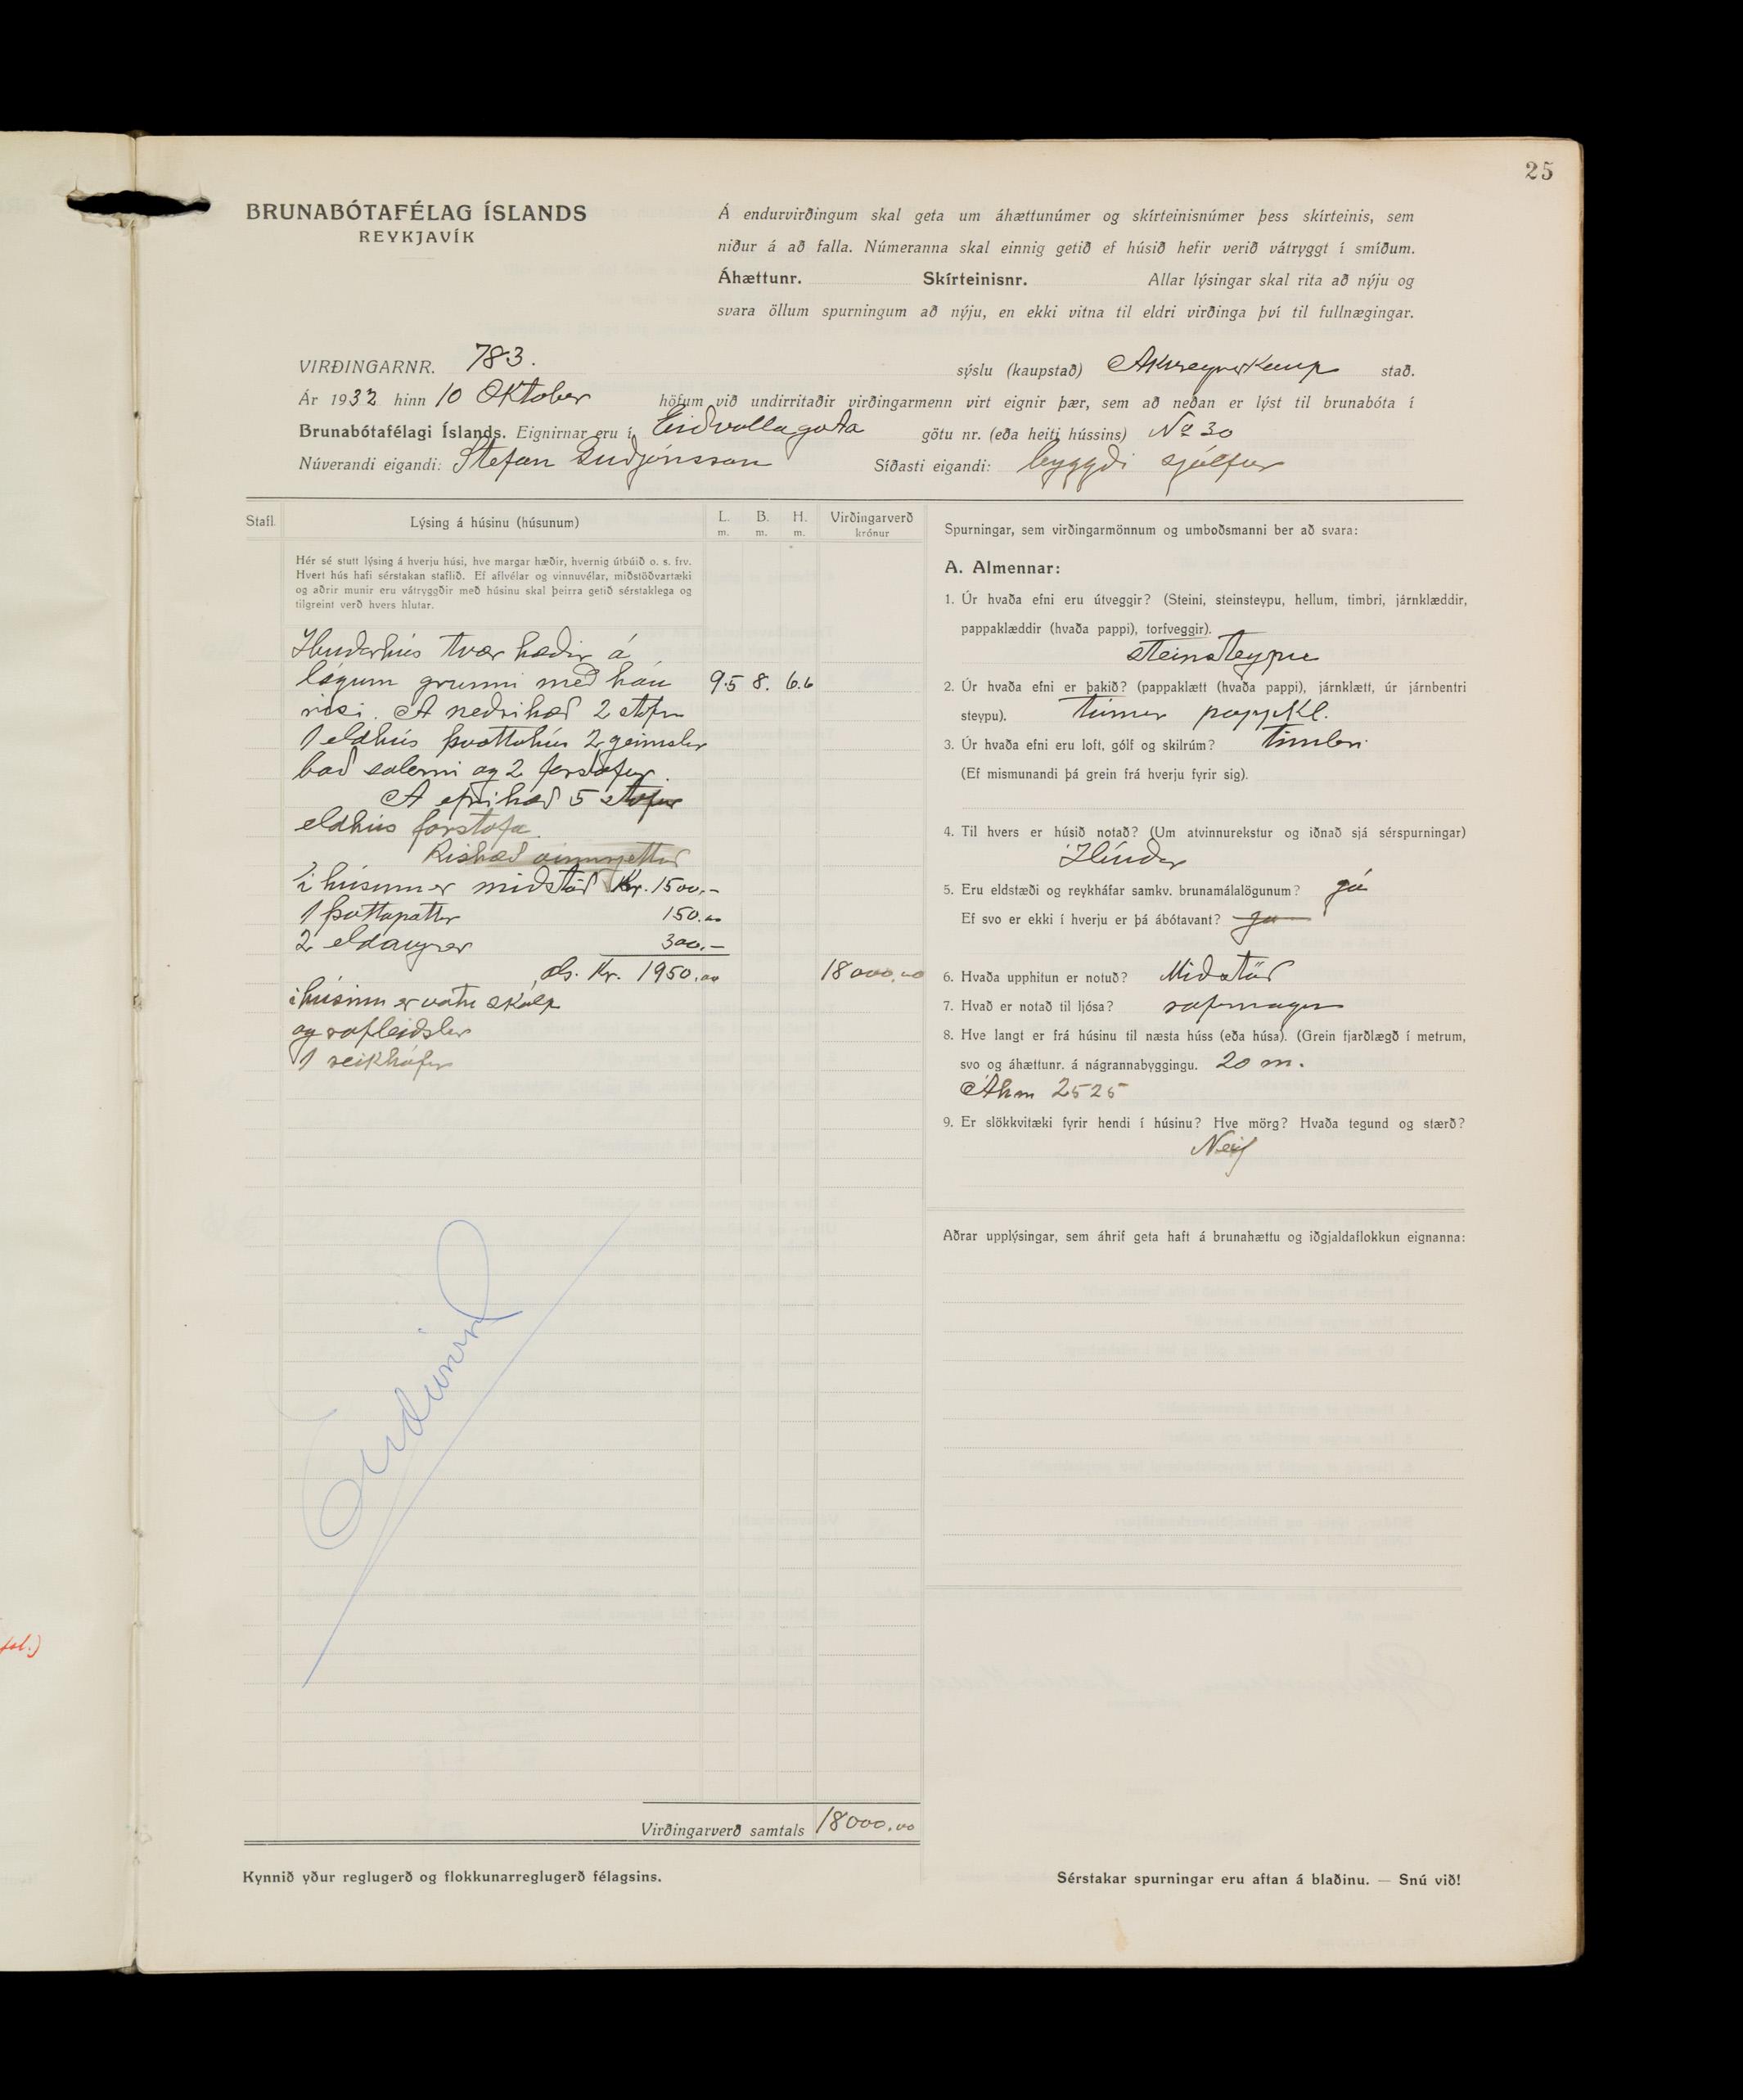 25
BRUNABÓTAFÉLAG ÍSLANDS
REYKJAVÍK
Á endurvirðingum skal geta um áhættunúmer og skírteinisnúmer þess skírteinis, sem
niður á að falla. Númeranna skal einnig getið ef húsið hefir verið vátryggt í smíðum.
Áhættunr. Skírteinisnr. Allar lýsingar skal rita að nýju og
svara öllum spurningum að nýju, en ekki vitna til eldri virðinga því til fullnægingar.
VIRÐINGARNR. 783. sýslu (kaupstað) Akureyrarkaup stað.
Ár 1932 hinn 10 Oktober höfum við undirritaðir virðingarmenn virt eignir þær, sem að neðan er lýst til brunabóta í
Brunabótafélagi Íslands. Eignirnar eru í Eiðvallagata götu nr. (eða heiti hússins) No 30
Núverandi eigandi: Stefan Guðjónsson Síðasti eigandi: byggði sjálfur
Stafl. Lýsing á húsinu (húsunum) L. m. B. m. H. m. Virðingarverð krónur
Hér sé stutt lýsing á hverju húsi, hve margar hæðir, hvernig útbúið o. s. frv.
Hvert hús hafi sérstakan staflið. Ef aflvélar og vinnuvélar, miðstöðvartæki
og aðrir munir eru vátryggðir með húsinu skal þeirra getið sérstaklega og
tilgreint verð hvers hlutar.
Íbuðarhús tvær hæðir á
lágum grunni með háu 9.5 8. 6.6
risi. A neðrihæð 2 stofur
1 eldhús þvottahús 2 geimslur
bað salerni og 2 forstofur.
A efrihæð 5 stofur
eldhús forstofa.
Rishæð
í húsinu er miðstöð Kr. 1500.-
1 þvottapottur 150.00
2 eldavjelar 300.-
als. Kr. 1950.00 18000.00
í húsinu er vatn skólp
og rafleiðslur
1 reikháfur
Endurvirð
Virðingarverð samtals 18000.00
Kynnið yður reglugerð og flokkunarreglugerð félagsins.
Spurningar, sem virðingarmönnum og umboðsmanni ber að svara:
A. Almennar:
1. Úr hvaða efni eru útveggir? (Steini, steinsteypu, hellum, timbri, járnklæddir,
pappaklæddir (hvaða pappi), torfveggir).
steinsteypu
2. Úr hvaða efni er þakið? (pappaklætt (hvaða pappi), járnklætt, úr járnbentri
steypu). timur pappkl.
3. Úr hvaða efni eru loft, gólf og skilrúm? timbri
(Ef mismunandi þá grein frá hverju fyrir sig).
4. Til hvers er húsið notað? (Um atvinnurekstur og iðnað sjá sérspurningar)
Íbúðar
5. Eru eldstæði og reykháfar samkv. brunamálalögunum? já
Ef svo er ekki í hverju er þá ábótavant? ja
6. Hvaða upphitun er notuð? Miðstöð
7. Hvað er notað til ljósa? rafurmagn
8. Hve langt er frá húsinu til næsta húss (eða húsa). (Grein fjarðlægð í metrum,
svo og áhættunr. á nágrannabyggingu. 20 m.
Áhnr 2525
9. Er slökkvitæki fyrir hendi í húsinu? Hve mörg? Hvaða tegund og stærð?
Nei
Aðrar upplýsingar, sem áhrif geta haft á brunahættu og iðgjaldaflokkun eignanna:
Sérstakar spurningar eru aftan á blaðinu. — Snú við!